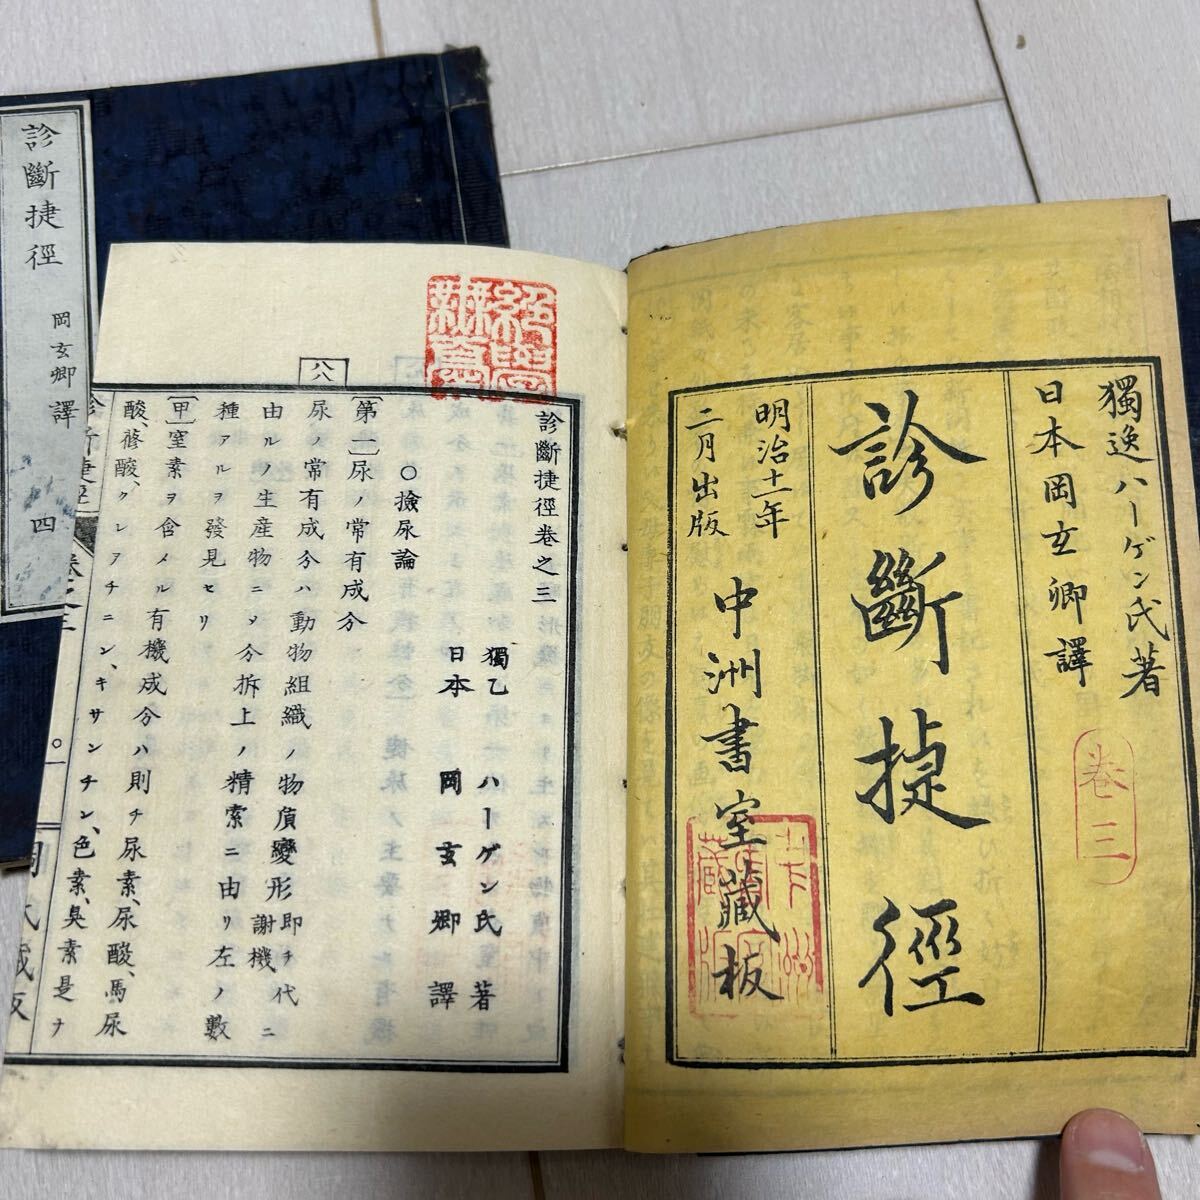 獨逸ハーゲン氏著
日本岡玄卿譯
卷三
診斷捷徑
明治十一年
二月出版
中洲書室藏板
診斷捷徑卷之三
獨乙 ハーゲン氏 著
日本 岡玄卿 譯
○撿尿論
〔第一〕尿ノ常有成分
尿ノ常有成分ハ動物組織ノ物質變形即チ代謝機ニ
由ルノ生産物ニノ分拆上ノ精索ニ由リ左ノ數
種アルヲ發見セリ
〔甲〕窒素ヲ含メル有機成分ハ則チ尿素、尿酸、馬尿
酸、蓚酸、クレアチニン、キサンチン、色素、臭素是ナ
診斷捷徑
卷之三
〇一
岡氏藏板
診斷捷徑
岡玄卿譯
四